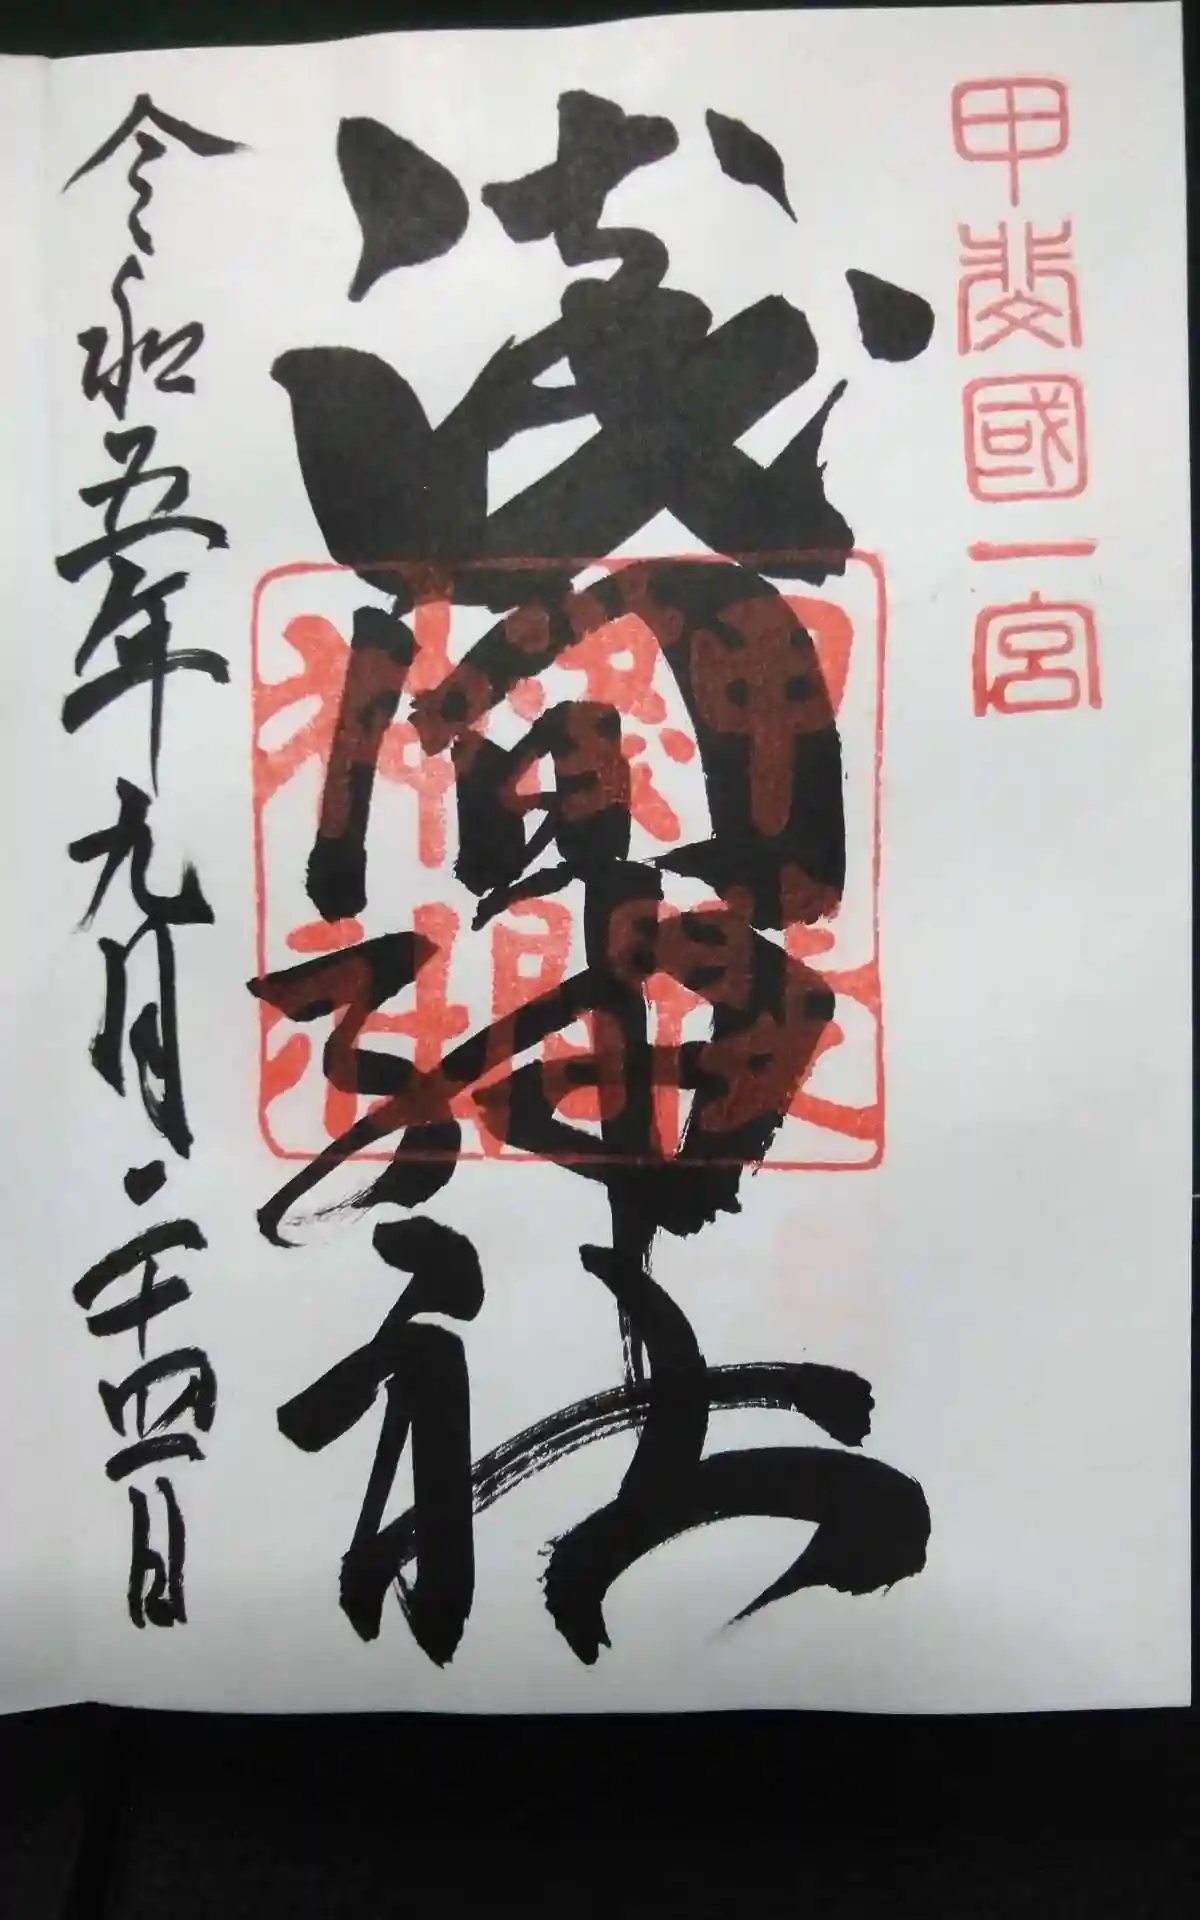 甲斐國一宮
浅間神社
甲斐國
浅間
神社
令和五年九月二十四日